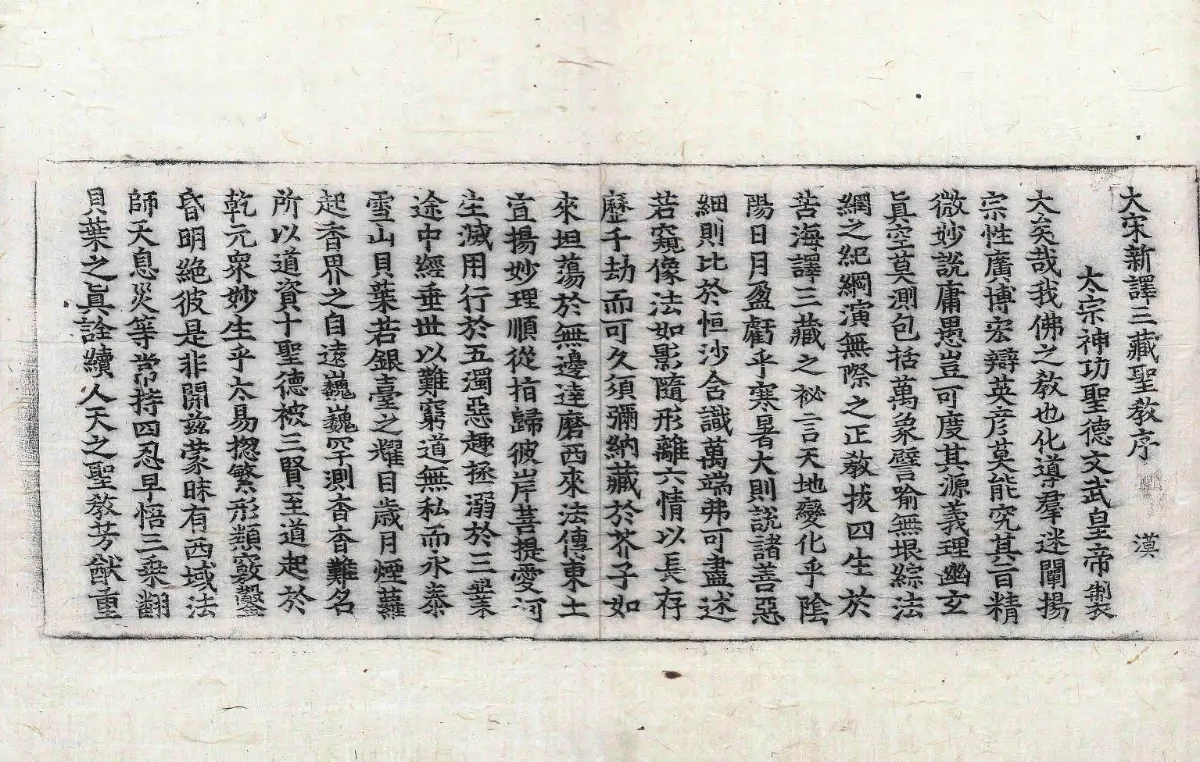 大宋新譯三藏聖教序 漢
太宗神功聖德文武皇帝製
大矣哉我佛之教也化導羣迷闡揚
宗性廣博宏辯英彦莫能究其旨精
微妙說庸愚豈可度其源義理幽玄
眞空莫測包括萬象譬喻無垠綜法
網之紀綱演無際之正教拔四生於
苦海譯三藏之祕言天地變化乎陰
陽日月盈虧乎寒暑大則說諸善惡
細則比於恒沙含識萬端弗可盡述
若窺像法如影隨形離六情以長存
歷千劫而可久須彌納藏於芥子如
來坦蕩於無邊達磨西來法傳東土
宣揚妙理順從指歸彼岸菩提愛河
生滅用行於五濁惡趣拯溺於三業
途中經垂世以難窮道無私而永泰
雪山貝葉若銀臺之耀目歲月煙蘿
起香界之自遠巍巍罕測杳杳難名
所以道資十聖德被三賢至道起於
乾元衆妙生乎太易揔繁形類竅鑿
昏明絕彼是非開兹蒙昧有西域法
師天息災等常持四忍早悟三乘翻
貝葉之眞詮續人天之聖教芳猷重